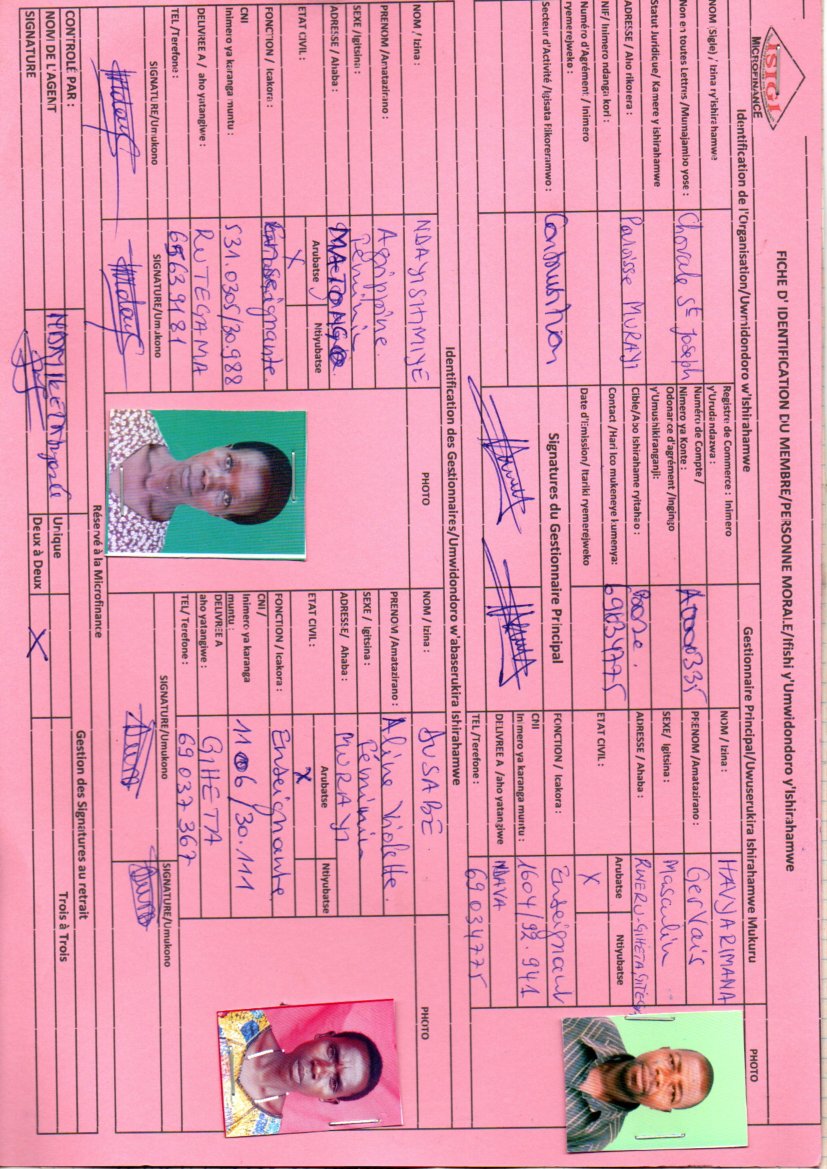 ISIGI
MICROFINANCE
FICHE D' IDENTIFICATION DU MEMBRE/PERSONNE MORALE/Ifishi y'Umwidondoro y'Ishirahamwe
Identification de l'Organisation/Uwmidondoro w'Ishirahamwe
Gestionnaire Principal/Uwuserukira Ishirahamwe Mukuru
PHOTO
NOM (Sigle) / Izina ry'ishirahamwe
Non en toutes Lettres /Mumajambo yose :
Chorale St Joseph
Statut Juridicue/ Kamere y ishirahamwe
ADRESSE / Aho rikorera :
Paroisse MURAYI
NIF/ Inimero ndanga kori :
Numéro d'Agrément / Inimero
ryemerejweko :
Secteur d'Activité /Igisata Rikoreramwo :
Registre de Commerce : Inimero
y'Urudandazwa :
Numéro de Compte /
Nimero ya Konte :
Odonance d'agrément /Ingingo
y'Umushikiranganji:
Cible/Abo Ishirahame ryitaho :
Contact /Hari ico mukeneye kumenya:
69034775
Date d'Emission/ Itariki ryemerejweko
Signatures du Gestionnaire Principal
NOM / Izina :
HAVYARIMANA
PRENOM /Amatazirano :
Gervais
SEXE/ Igitsina :
Masculin
ADRESSE / Ahaba :
ETAT CIVIL :
Arubatse
Ntiyubatse
X
FONCTION / Icakora :
Enseignant
CNI
Inimero ya karanga muntu :
1604/92.941
DELIVREE A /aho yatangiwe
NDAVA
TEL /Terefone :
69034775
Identification des Gestionnaires/Umwidondoro w'abaserukira Ishirahamwe
NOM / Izina :
NDAYISHIMIYE
PHOTO
PRENOM /Amatazirano :
Agrippine
SEXE /Igitsina :
Féminin
ADRESSE / Ahaba :
MATONGO
ETAT CIVIL :
Arubatse
Ntiyubatse
X
FONCTION / Icakora :
Enseignante
CNI
Inimero ya karanga muntu :
531.0305/30.988
DELIVREE A / aho yatangiwe :
RUTEGAMA
TEL /Terefone :
65639181
SIGNATURE/Umukono
SIGNATURE/Umukono
NOM / Izina :
DUSABE
PHOTO
PRENOM /Amatazirano :
Aline Violette
SEXE / Igitsina :
Féminin
ADRESSE/ Ahaba :
MURAYI
ETAT CIVIL :
Arubatse
Ntiyubatse
X
FONCTION / Icakora :
Enseignante
CNI /
Inimero ya karanga
muntu :
1106/30.111
DELIVREE A
aho yatangiwe :
GIHETA
TEL/ Terefone :
69037367
SIGNATURE/Umukono
SIGNATURE/Umukono
Réservé à la Microfinance
CONTROLÉ PAR :
NOM DE L'AGENT
SIGNATURE
Gestion des Signatures au retrait
Unique
Trois à Trois
Deux à Deux
X